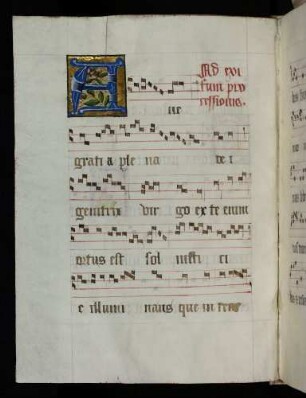 Ad exi
tum pro
cessionis.
A ue
grati a ple na de i
genitrix vir go ex te enim
ortus est sol iusti ci
e illumi nans que in tene